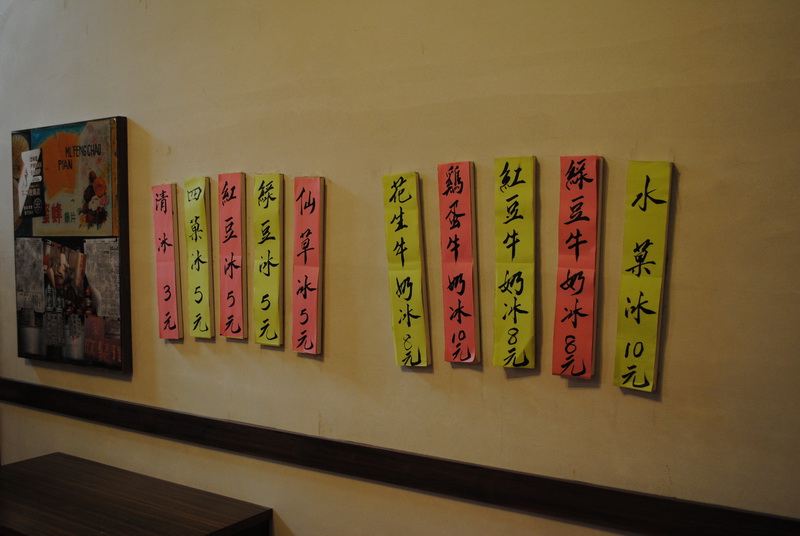 清冰3元
四菓冰5元
紅豆冰5元
綠豆冰5元
仙草冰5元
花生牛奶冰8元
鷄蛋牛奶冰10元
紅豆牛奶冰8元
綠豆牛奶冰8元
水菓冰10元